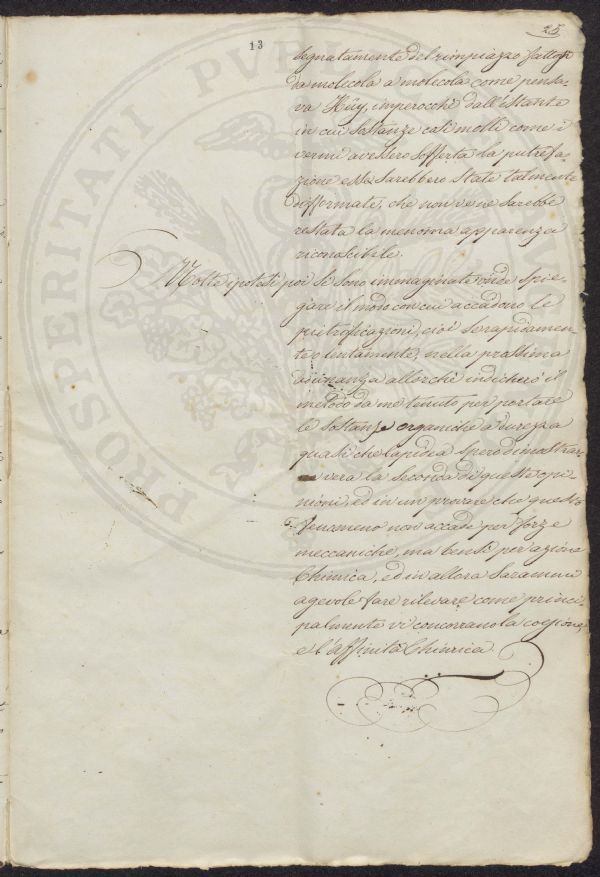 25
13
segnatamente del rimpiazzo fattosi
da molecola a molecola come pensa-
va Häy, imperocchè dall'istante
in cui sostanze così molli come i
vermi avessero sofferta la putrefa-
zione esse sarebbero state talmente
difformate, che non ve ne sarebbe
restata la menoma apparenza
riconoscibile.
Molte ipotesi poi si sono immaginate onde spie-
gare il modo con cui accadono le
pietrificazioni, cioè se rapidamen-
te o lentamente, nella prossima
adunanza allorchè indicherò il
metodo da me tenuto per portare
le sostanze organiche a durezza
quasi che lapidea spero dimostrar
vera la seconda di queste opi-
nioni, ed in un provare che questo
fenomeno non accade per forze
meccaniche, ma bensì per azione
Chimica, ed in allora sarammi
agevole fare rilevare come princi-
palmente vi concorrano la coesione,
e l'affinità Chimica.
PROSPERITATI PUBL